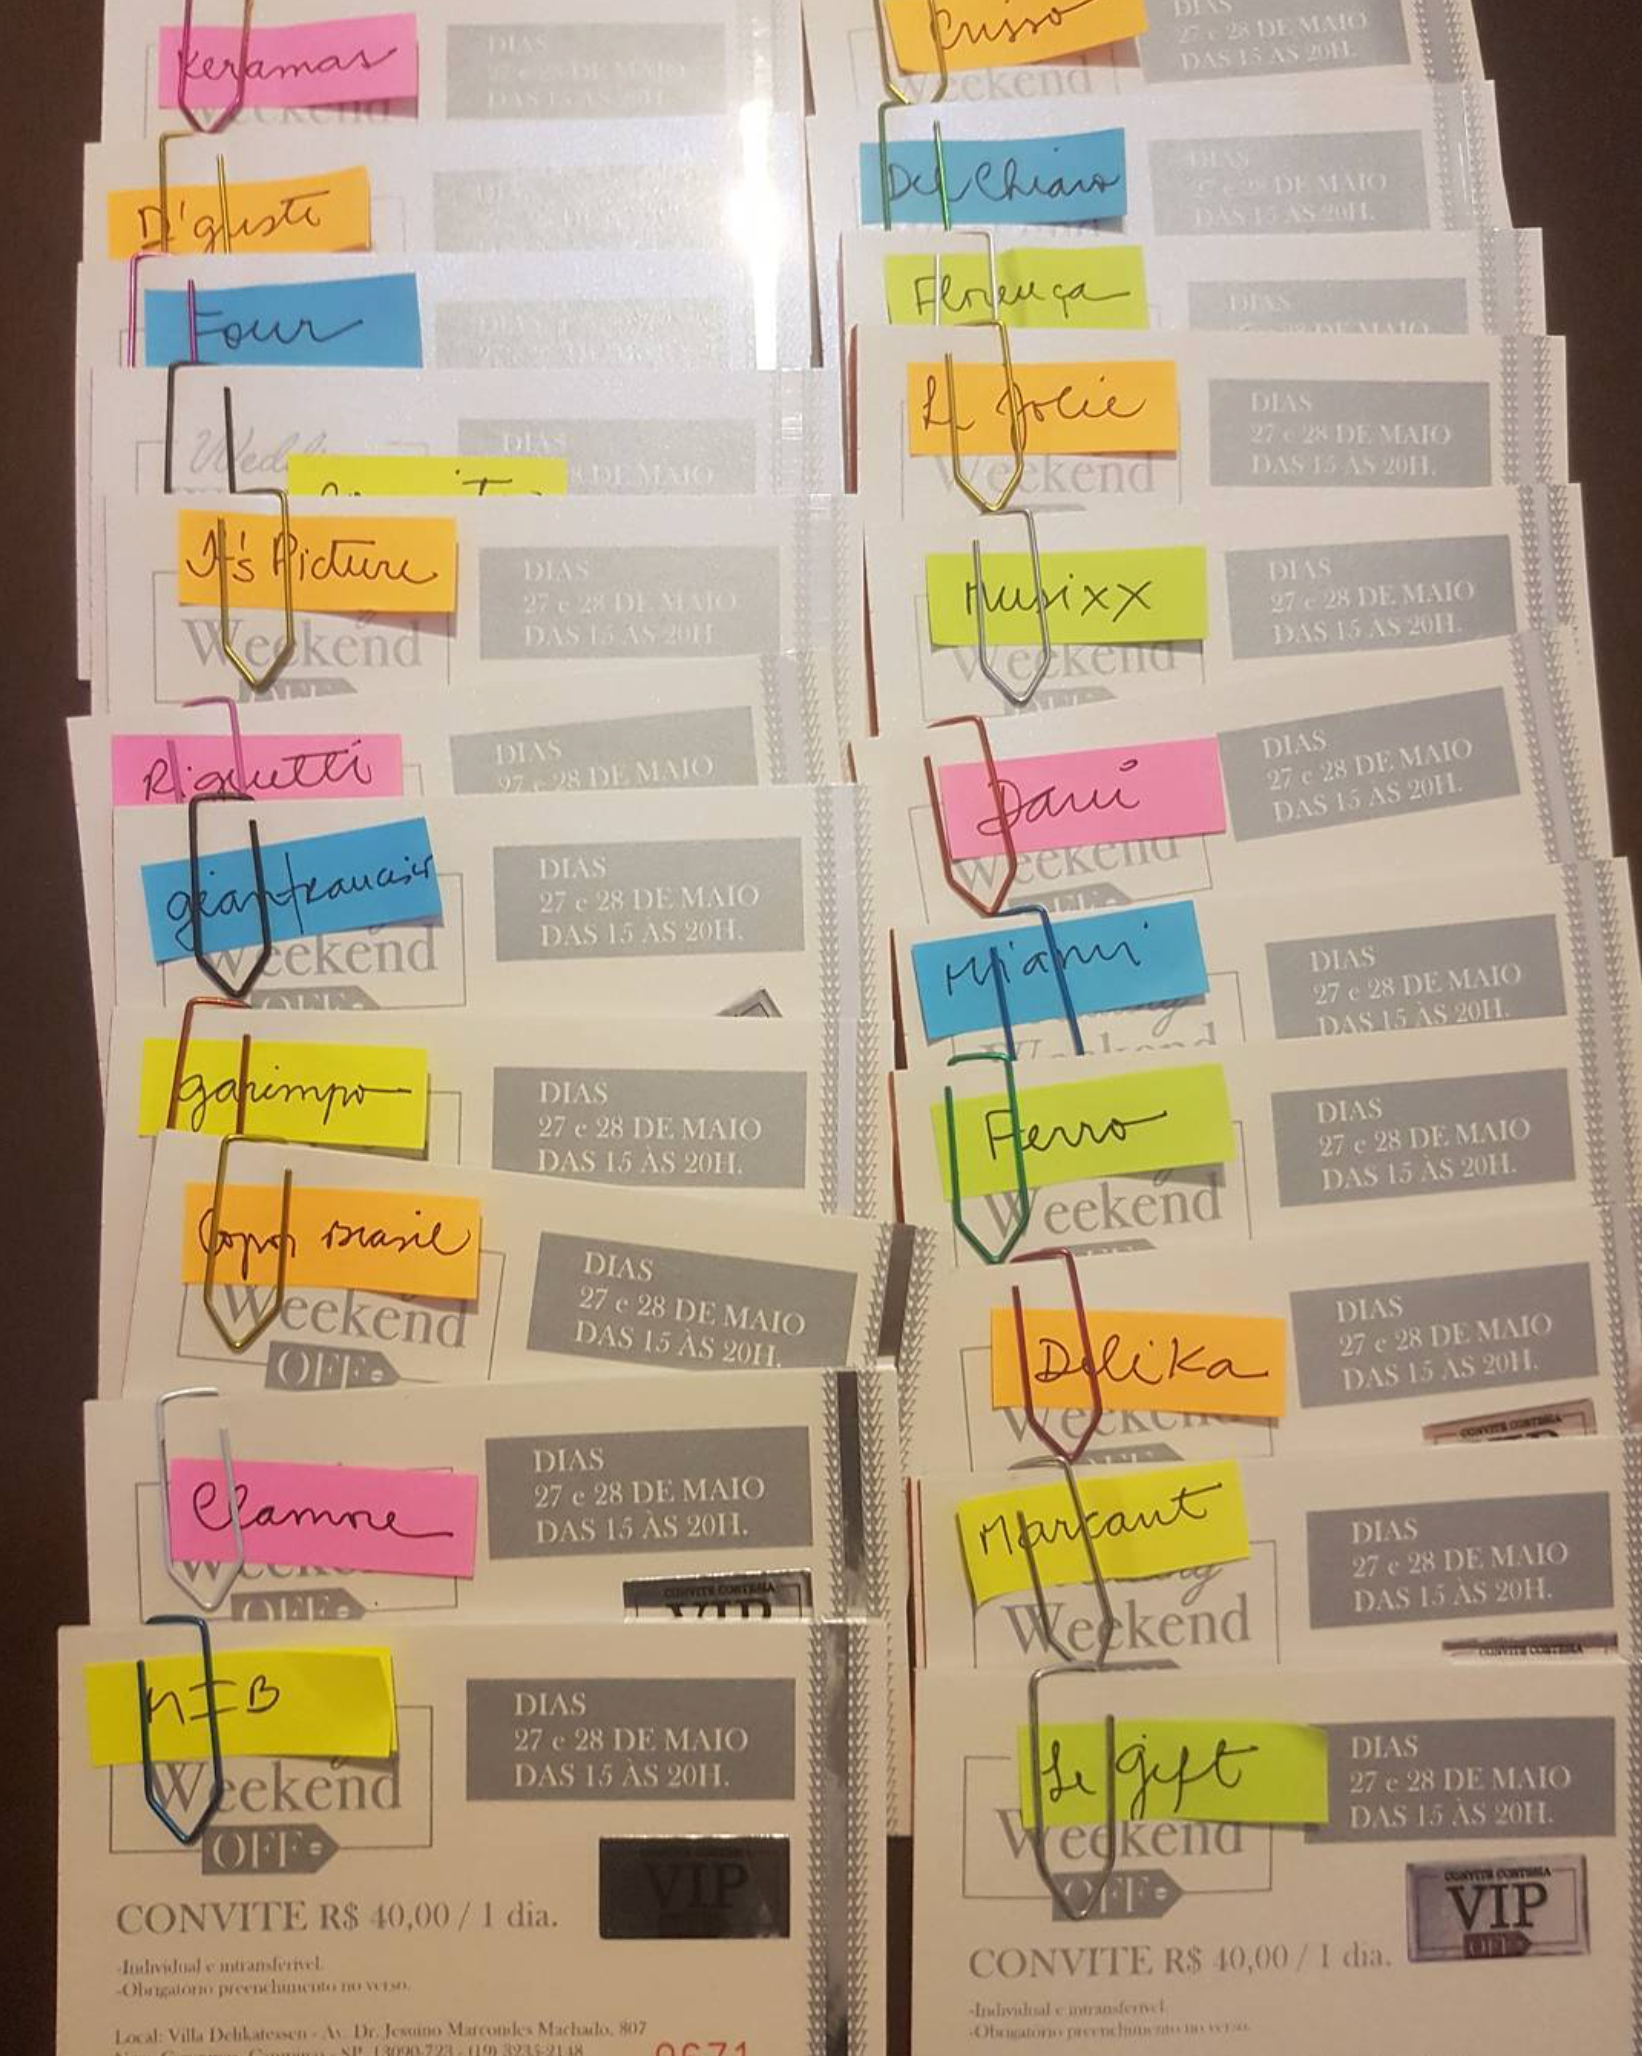 Keramas
Weekend
DIAS
27 e 28 DE MAIO
DAS 15 ÀS 20H.
D'gusti
Four
DIAS
Wedding
DIAS
28 DE MAIO
It's Picture
Weekend
DIAS
27 e 28 DE MAIO
DAS 15 ÀS 20H.
Riguetti
DIAS
27 e 28 DE MAIO
Weekend
DIAS
27 e 28 DE MAIO
DAS 15 ÀS 20H.
garimpo
DIAS
27 e 28 DE MAIO
DAS 15 ÀS 20H.
Brasil
Weekend
OFF
DIAS
27 e 28 DE MAIO
DAS 15 ÀS 20H.
Weekend
OFF
DIAS
27 e 28 DE MAIO
DAS 15 ÀS 20H.
CONVITE CORTESIA
VIP
Weekend
OFF
DIAS
27 e 28 DE MAIO
DAS 15 ÀS 20H.
VIP
CONVITE R$ 40,00 / 1 dia.
-Individual e intransferível.
-Obrigatório preenchimento no verso.
Local: Villa Delikatessen - Av. Dr. Jesuíno Marcondes Machado, 807
Nova Campinas, Campinas - SP, 13090-723 - (19) 3235-2148
0671
Crisso
Weekend
DIAS
27 e 28 DE MAIO
DAS 15 ÀS 20H.
Del Chiaro
DIAS
27 e 28 DE MAIO
DAS 15 ÀS 20H.
Florença
DIAS
27 e 28 DE MAIO
Jolie
Weekend
DIAS
27 e 28 DE MAIO
DAS 15 ÀS 20H.
Musixx
Weekend
DIAS
27 e 28 DE MAIO
DAS 15 ÀS 20H.
Weekend
DIAS
27 e 28 DE MAIO
DAS 15 ÀS 20H.
Miami
Weekend
DIAS
27 e 28 DE MAIO
DAS 15 ÀS 20H.
Ferro
Weekend
DIAS
27 e 28 DE MAIO
DAS 15 ÀS 20H.
Delika
Weekend
DIAS
27 e 28 DE MAIO
DAS 15 ÀS 20H.
CONVITE CORTESIA
Markant
Weekend
DIAS
27 e 28 DE MAIO
DAS 15 ÀS 20H.
CONVITE CORTESIA
Le gift
Weekend
OFF
DIAS
27 e 28 DE MAIO
DAS 15 ÀS 20H.
CONVITE CORTESIA
VIP
OFF
CONVITE R$ 40,00 / 1 dia.
-Individual e intransferível.
-Obrigatório preenchimento no verso.